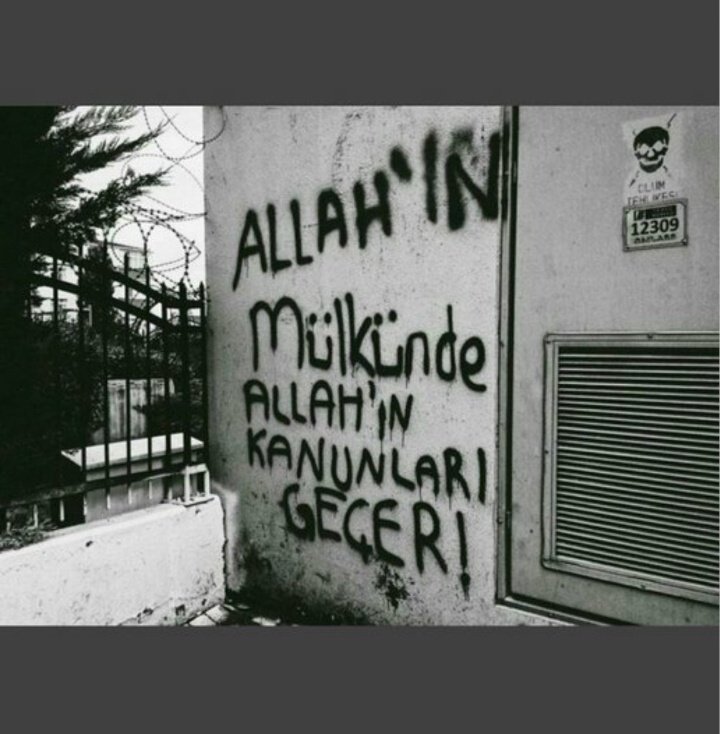 ALLAH'IN
Mülkünde
ALLAH'IN
KANUNLARI
GEÇER!
ÖLÜM
TEHLİKESİ
12309